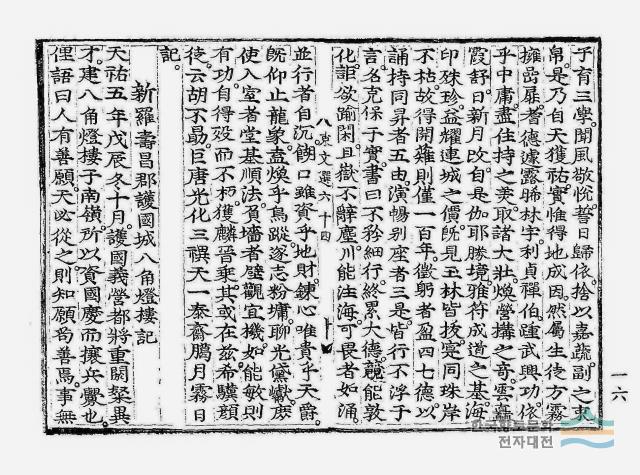 乎育三學聞風敬悅誓日歸依捨以嘉蔬副之束
帛是乃自天獲祐實惟得地成因然屬生徒方霧
擁喦扉耆德遽露晞林宇利貞禪伯踵武興功依
乎中庸盡住持之美取諸大壯煥營構之奇雲矗
霞舒日新月改自是伽耶勝境雅符成道之基海
印殊珍益耀連城之價旣見玉林皆拔寔同珠岸
不枯故得開薙則僅一百年徵躬者盈四七德以
誦持同昇者五由演暢別座者三是皆行不浮于
言名克保于實書曰不矜細行終累大德兢能敦
化詎欲踰閑且嶽不辭塵川能注海可畏者如涌
東文選六十四
並行者自沉餬口雖資乎地財錬心唯貴乎天爵
旣仰止龍象盍煥乎鳥蹤遂志粉墉聊光黛巘庶
使入室者堂基順法負墻者壁觀宜機如能敏則
有功自得歿而不朽獲麟晉乘其或在兹希驥顔
徒云胡不勗巨唐光化三禩天一泰齋臈月霧日
記
新羅壽昌郡護國城八角燈樓記
天祐五年戊辰冬十月護國義營都將重閼粲異
才建八角燈樓于南嶺所以資國慶而攘兵釁也
俚語曰人有善願天必從之則知願爲善焉事無
一六
한국향토문화
전자대전